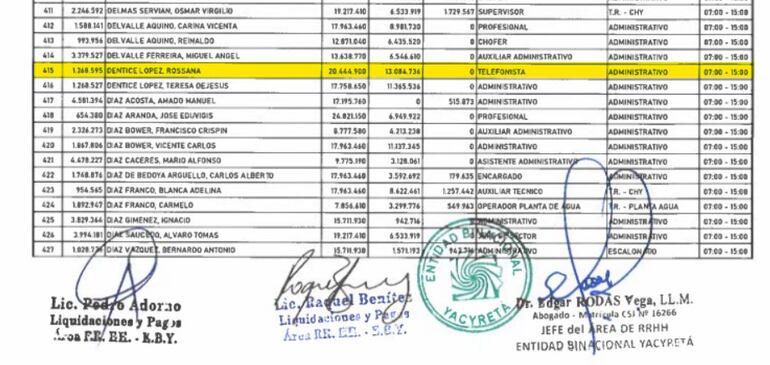 411 2.246.592 DELMAS SERVIAN, OSMAR VIRGILIO 19.217.410 6.533.919 1.729.567 SUPERVISOR T.R. - CHY 07:00 - 15:00
412 1.588.141 DELVALLE AQUINO, CARINA VICENTA 17.963.460 8.981.730 0 PROFESIONAL ADMINISTRATIVO 07:00 - 15:00
413 993.956 DELVALLE AQUINO, REINALDO 12.871.040 6.435.520 0 CHOFER ADMINISTRATIVO 07:00 - 15:00
414 3.379.527 DELVALLE FERREIRA, MIGUEL ANGEL 13.638.770 6.546.610 0 AUXILIAR ADMINISTRATIVO ADMINISTRATIVO 07:00 - 15:00
415 1.268.595 DENTICE LOPEZ, ROSSANA 20.444.900 13.084.736 0 TELEFONISTA ADMINISTRATIVO 07:00 - 15:00
416 1.268.527 DENTICE LOPEZ, TERESA DEJESUS 17.758.650 11.365.536 0 ADMINISTRATIVO ADMINISTRATIVO 07:00 - 15:00
417 4.581.394 DIAZ ACOSTA, AMADO MANUEL 17.195.760 0 515.873 ADMINISTRATIVO ADMINISTRATIVO 07:00 - 15:00
418 654.380 DIAZ ARANDA, JOSE EDUVIGIS 24.821.150 6.949.922 0 PROFESIONAL ADMINISTRATIVO 07:00 - 15:00
419 2.326.273 DIAZ BOWER, FRANCISCO CRISPIN 8.777.580 4.213.238 0 AUXILIAR ADMINISTRATIVO ADMINISTRATIVO 07:00 - 15:00
420 1.867.806 DIAZ BOWER, VICENTE CARLOS 17.963.460 11.137.345 0 ADMINISTRATIVO ADMINISTRATIVO 07:00 - 15:00
421 4.678.227 DIAZ CACERES, MARIO ALFONSO 9.775.190 3.128.061 0 ASISTENTE ADMINISTRATIVO ADMINISTRATIVO 07:00 - 15:00
422 1.748.876 DIAZ DE BEDOYA ARGUELLO, CARLOS ALBERTO 17.963.460 3.592.692 179.635 ENCARGADO ADMINISTRATIVO 07:00 - 15:00
423 954.565 DIAZ FRANCO, BLANCA ADELINA 17.963.460 8.622.461 1.257.442 AUXILIAR TECNICO T.R. - CHY 07:00 - 15:00
424 1.892.947 DIAZ FRANCO, CARMELO 7.856.610 3.299.776 549.963 OPERADOR PLANTA DE AGUA T.R. - PLANTA AGUA 07:00 - 15:00
425 3.829.364 DIAZ GIMENEZ, IGNACIO 15.711.930 942.716 ADMINISTRATIVO ADMINISTRATIVO 07:00 - 15:00
426 3.994.181 DIAZ SAUCEDO, ALVARO TOMAS 19.217.410 6.533.919 ADMINISTRATIVO 07:00 - 15:00
427 DIAZ VAZQUEZ, BERNARDO ANTONIO 15.711.930 1.571.193 ADMINISTRATIVO ESCALONADO 07:00 - 15:00
ENTIDAD BINACIONAL
YACYRETA
Lic. Pedro Adorno
Liquidaciones y Pagos
Área RR. EE. - E.B.Y.
Lic. Raquel Benítez
Liquidaciones y Pagos
Área RR. EE. - E.B.Y.
Dr. Edgar RODAS Vega, LL.M.
Abogado - Matrícula CSJ Nº 16266
JEFE del ÁREA DE RRHH
ENTIDAD BINACIONAL YACYRETÁ